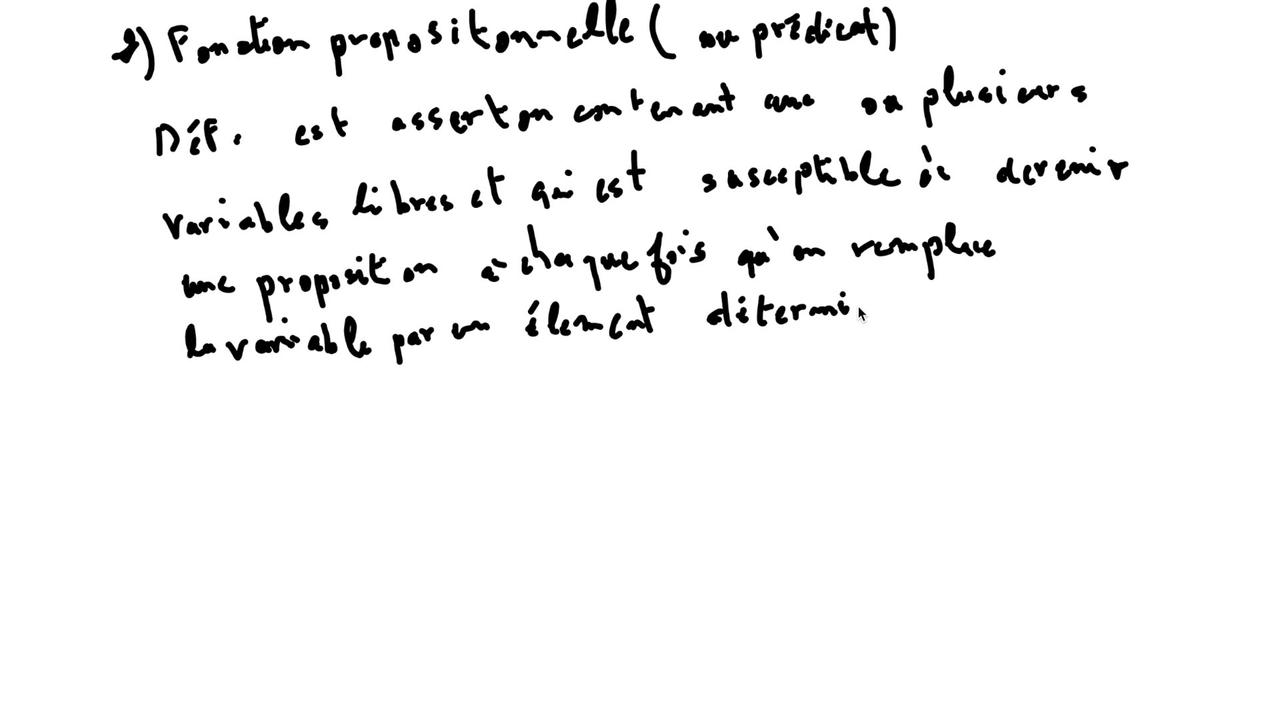 2) Fonction propositionnelle ( ou prédicat)
Déf. est assertion contenant une ou plusieurs
variables libres et qui est susceptible à devenir
une proposition à chaque fois qu'on remplace
la variable par un élement détermi